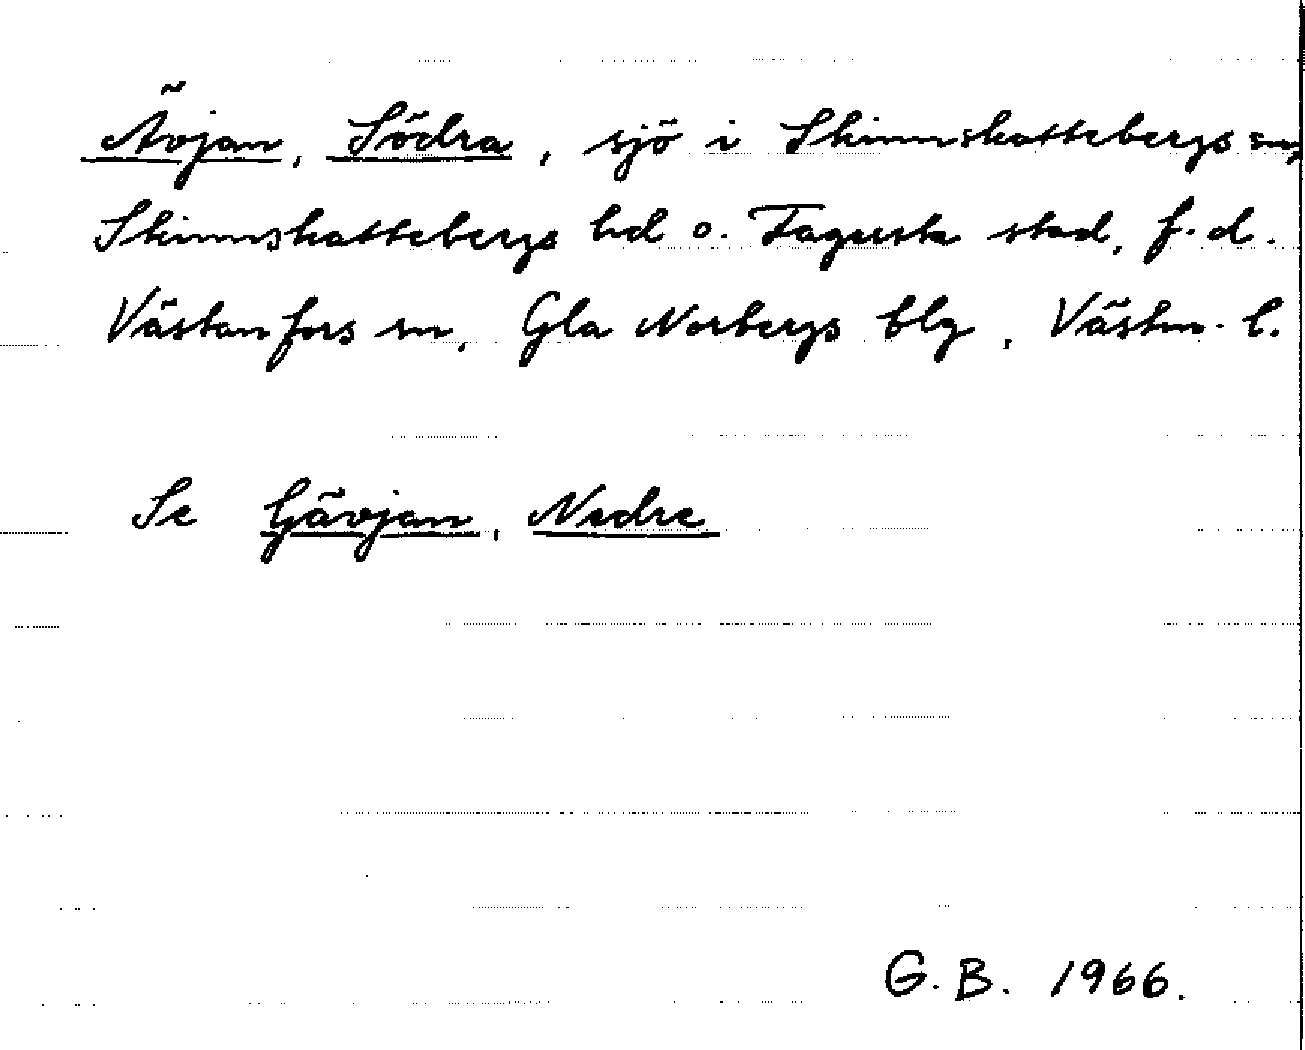 Ävjan, Södra, sjö i Skinnskattebergs sn,
Skinnskattebergs hd o. Fagersta stad, f.d.
Västanfors sn, Gla Norbergs blg, Västm. l.
Se Gävjan, Nedre
G.B. 1966.